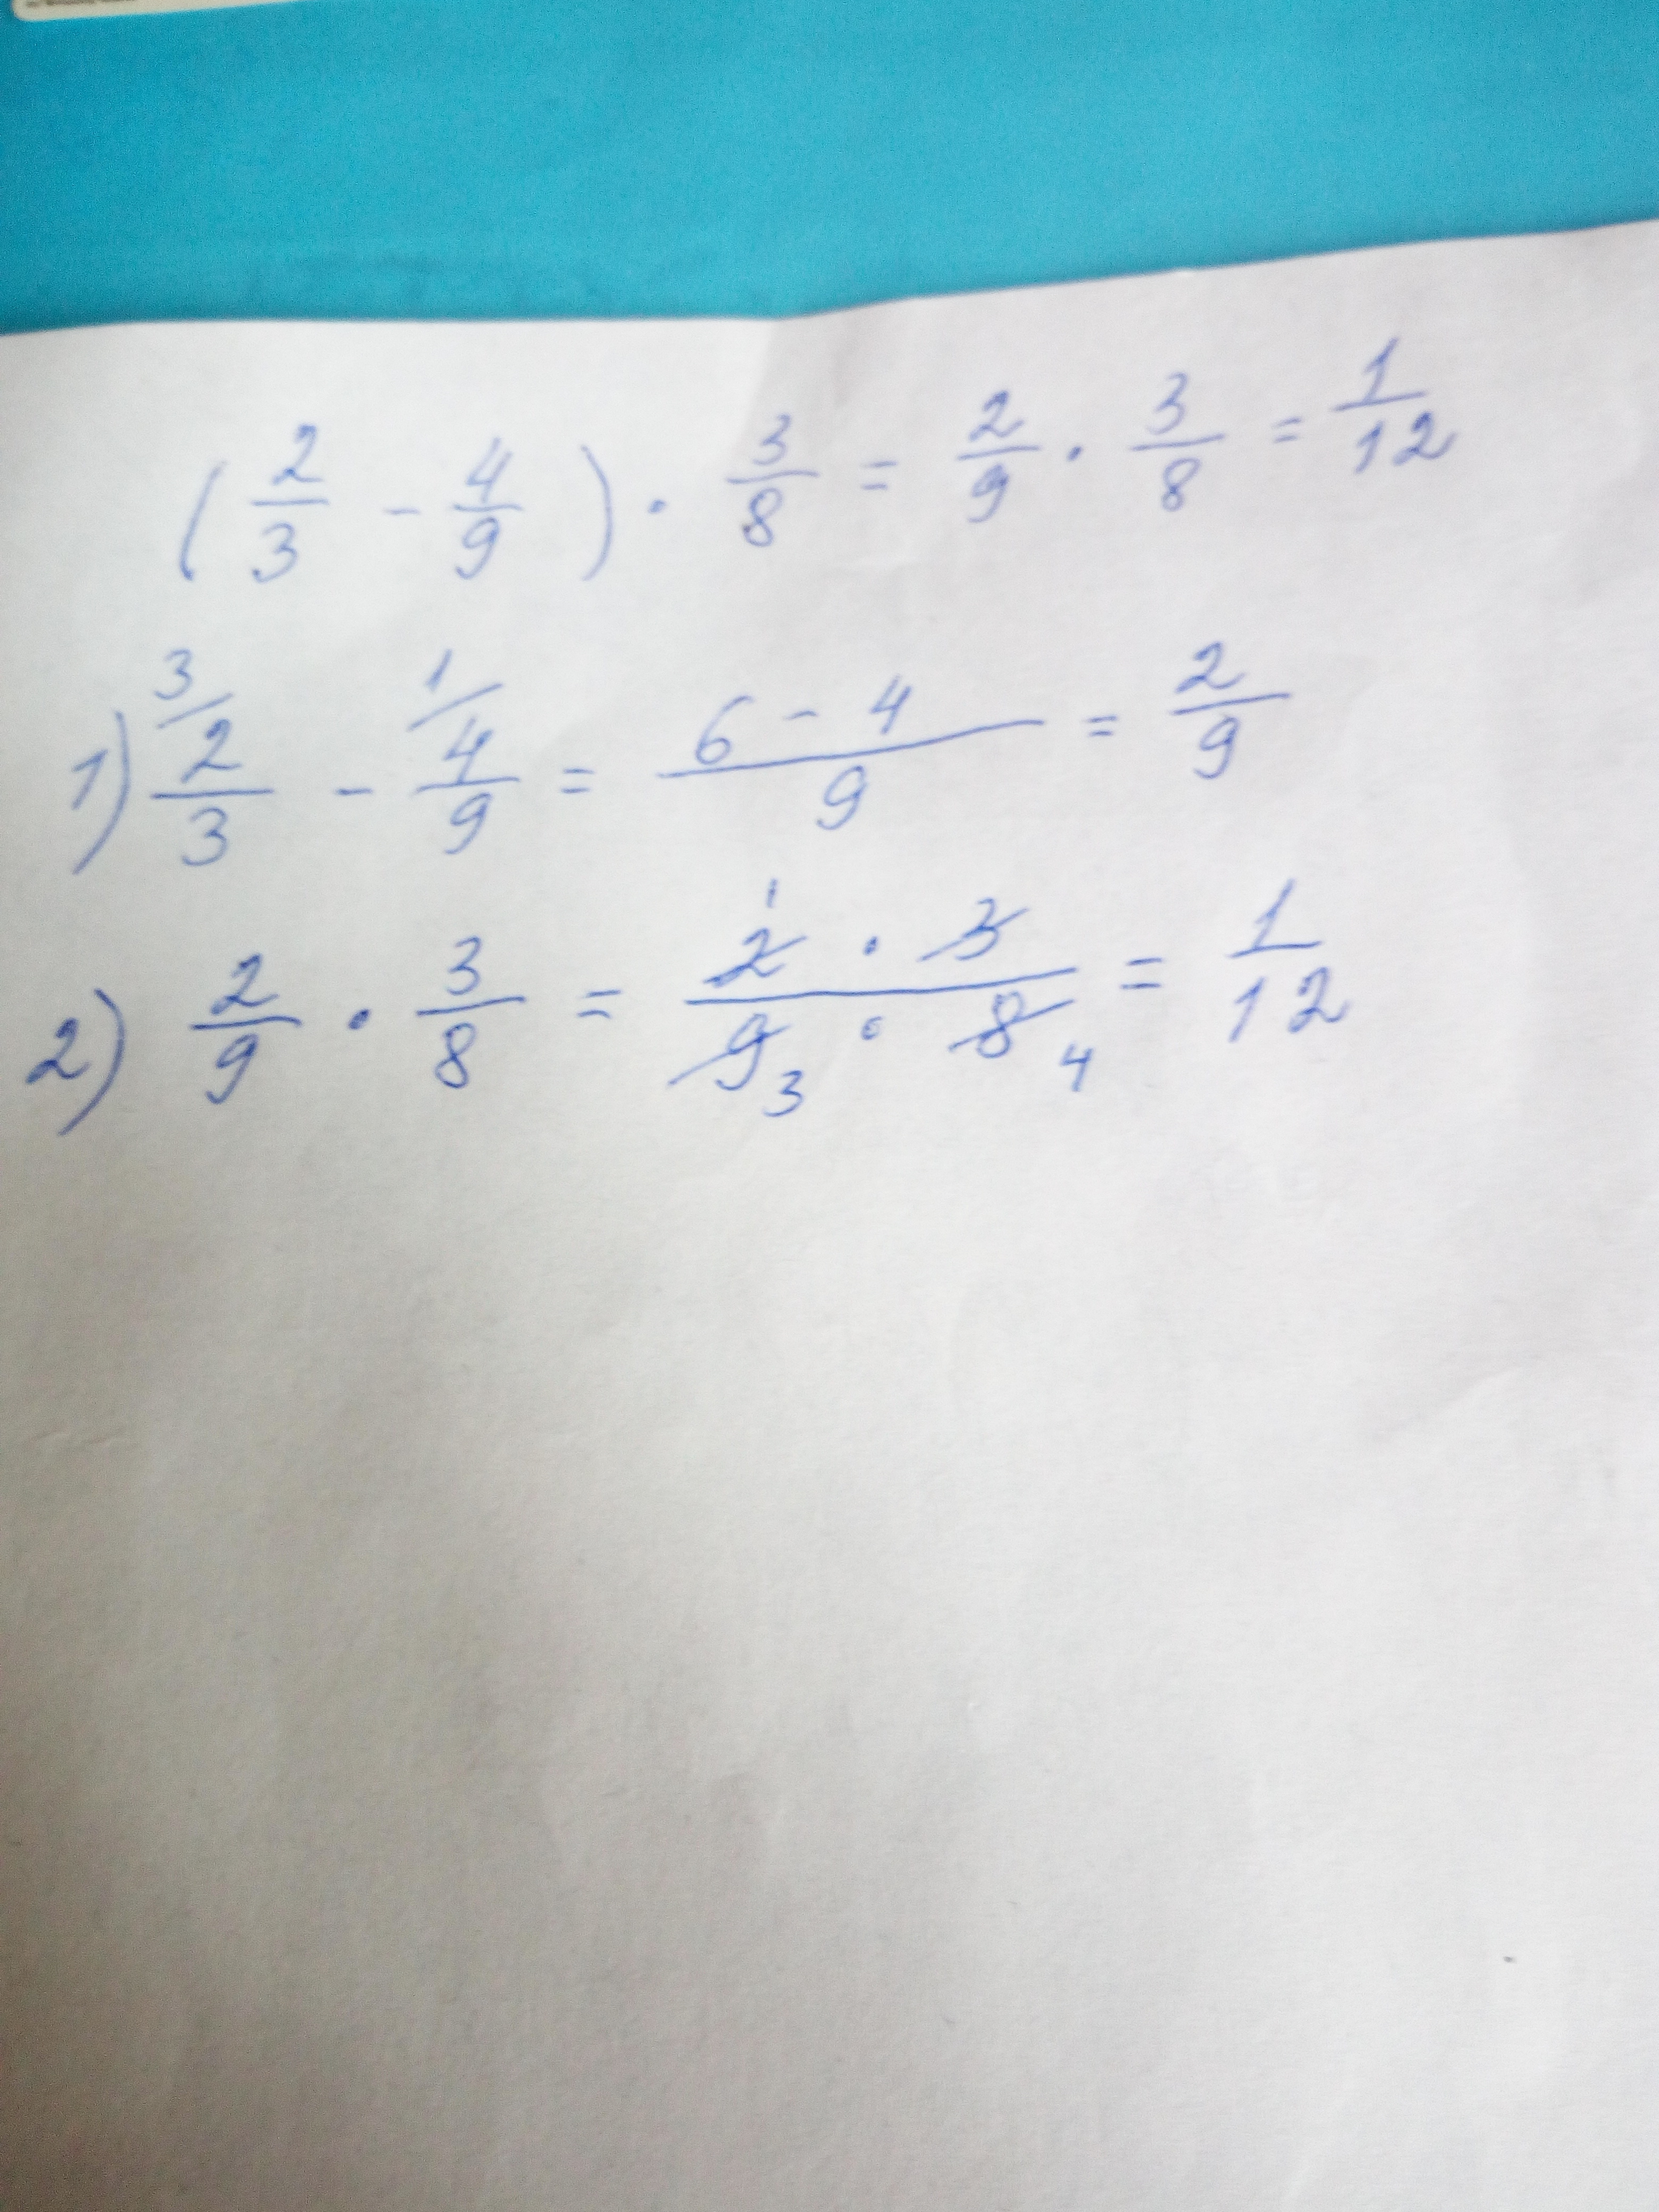 (2/3 - 4/9) · 3/8 = 2/9 · 3/8 = 1/12
1) 3/ 2/3 - 1/ 4/9 = 6 - 4/9 = 2/9
2) 2/9 · 3/8 = 2 1 · 3/9 3 · 8 4 = 1/12